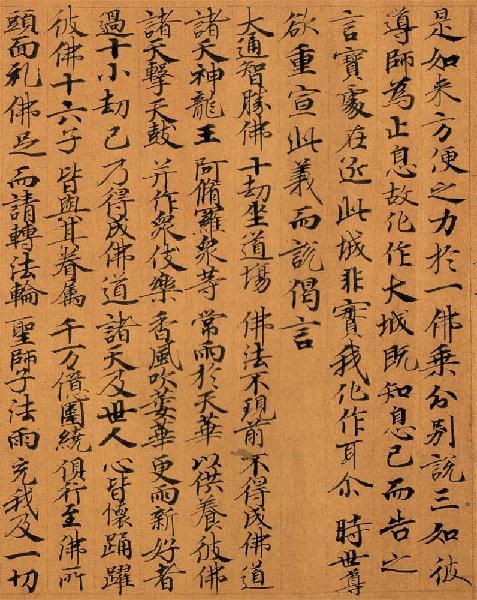 是如来方便之力於一佛乘分別說三如彼
導師為止息故化作大城既知息已而告之
言寶處在近此城非實我化作耳尒時世尊
欲重宣此義而說偈言
大通智勝佛 十劫坐道場 佛法不現前 不得成佛道
諸天神龍王 阿脩羅衆等 常雨於天華 以供養彼佛
諸天擊天鼓 并作衆伎樂 香風吹萎華 更雨新好者
過十小劫已 乃得成佛道 諸天及世人 心皆懷踊躍
彼佛十六子 皆與其眷属 千万億圍繞 俱行至佛所
頭面礼佛足 而請轉法輪 聖師子法雨 充我及一切